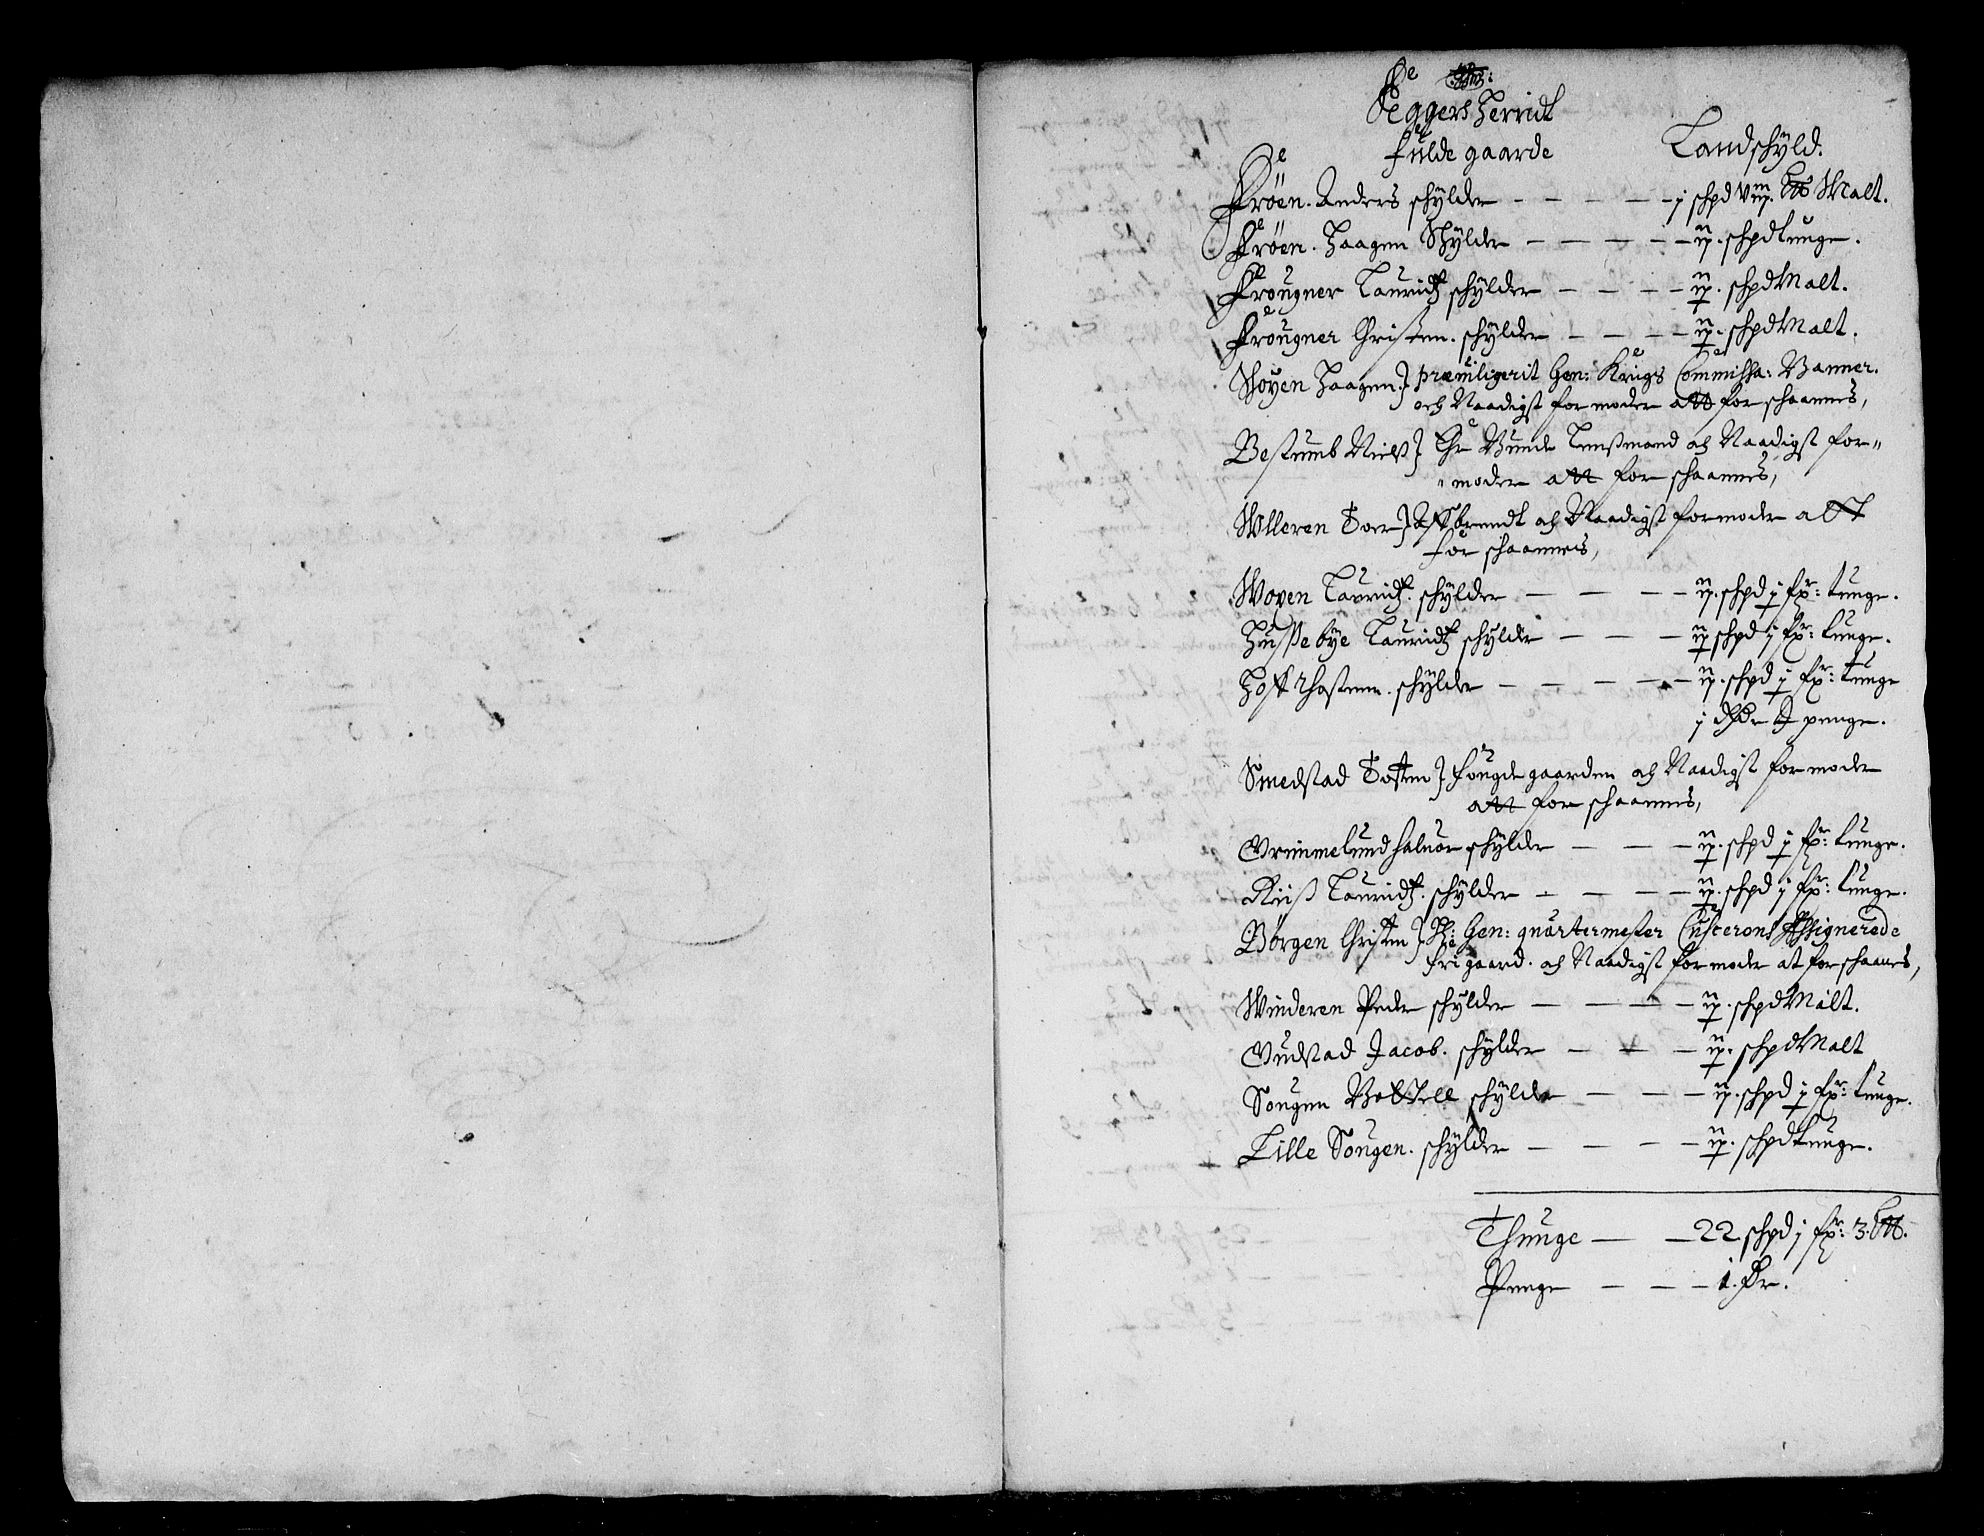 Aggers Herridt
fulde gaarde Landschyld:
Fröen. Anders schylder — — — — j schpd viij. Malt.
Fröen. Haagen Schylder — — — — ij. schpd tunge.
Frougner Lauridtz schylder — — — ij. schpd Malt.
Frougner Christen. schylder — — — ij. schpd Malt.
Höyen Haagen. } Gen: Krigs Commissa: Banner.
och Naadigst formoder att forschaannes,
Bestumb Niels } Lensmand och Naadigst for„
„moder att forschaannes,
Ulleren Toer } Affbrendt och Naadigst formoder att
forschaannes,
Woyen Lauridtz. schylder — — — — ij. schpd j fr: tunge.
Hussebye Lauridtz schylder — — — ij schpd j fr: tunge.
Hoff Thosten. schylder — — — — ij. schpd j fr: tunge
j dr penge.
Smedstad Tosten } fougde gaarden och Naadigst formoder
att forschaannes,
Grimmelund haluor schylder — — — ij. schpd j fr: tunge.
Riis Lauridtz. schylder — — — — ij. schpd j fr: tunge.
Börgen Christen } Gen: quartermester Custerons Assignerede
frigaard. och Naadigst formoder at forschaanes,
Winderen Peder schylder — — — — ij. schpd Malt.
Gudstad Jacob. schylder — — — ij. schpd Malt
Sougen Bottell schylder — — — ij. schpd j fr: tunge.
Lille Sougen. schylder — — — — ij. schpd tunge.
Thunge — — 22 schpd j fr: 3.
Penge — — — 1. dr.